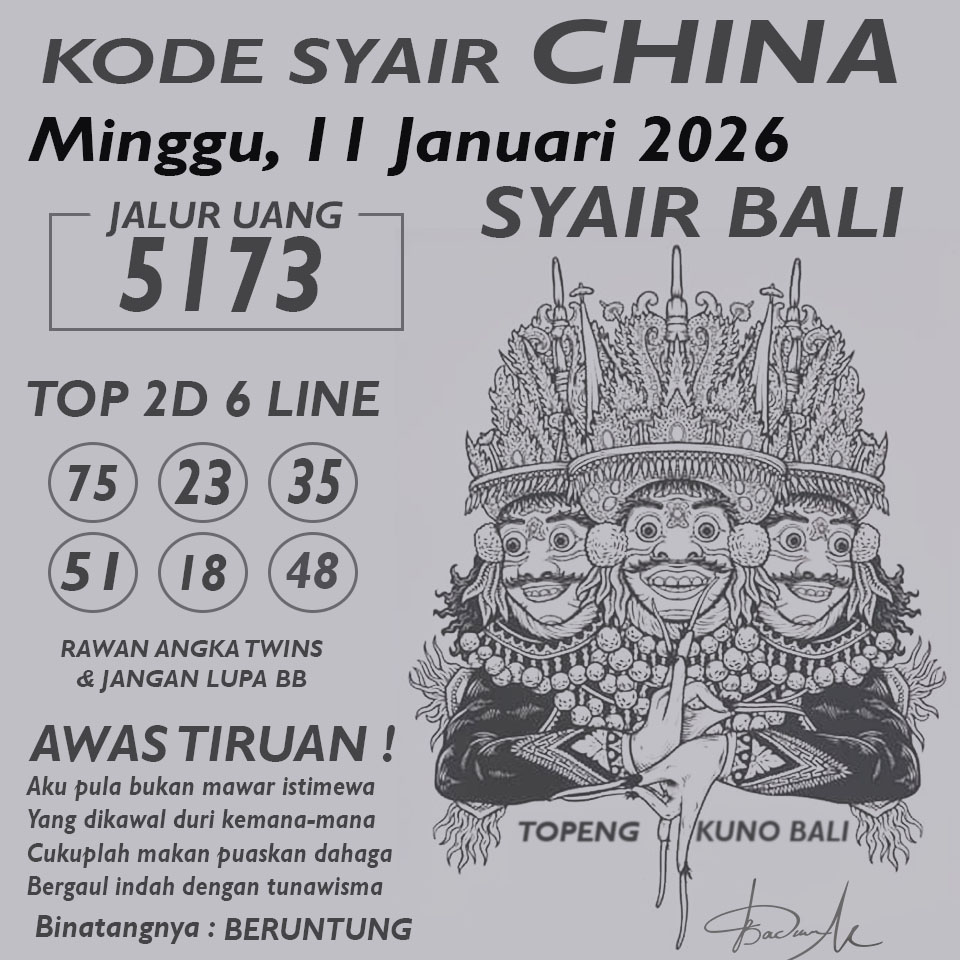 KODE SYAIR CHINA
Minggu, 11 Januari 2026
SYAIR BALI
JALUR UANG
5173
TOP 2D 6 LINE
75 23 35
51 18 48
RAWAN ANGKA TWINS
& JANGAN LUPA BB
AWAS TIRUAN !
Aku pula bukan mawar istimewa
Yang dikawal duri kemana-mana
Cukuplah makan puaskan dahaga
Bergaul indah dengan tunawisma
Binatangnya : BERUNTUNG
TOPENG KUNO BALI